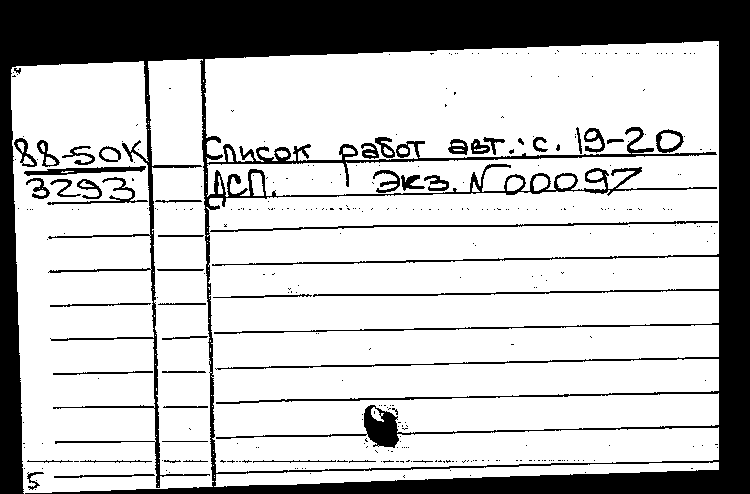 88-50К Список работ авт.: с. 19-20
3293 ДСП. Экз. №00097
5